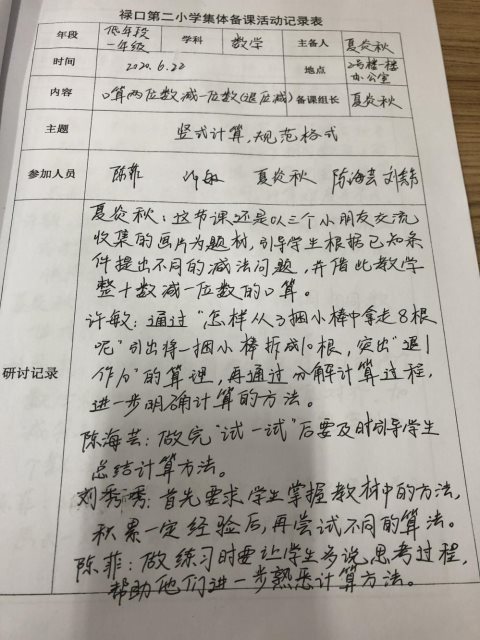 禄口第二小学集体备课活动记录表
年段 低年段一年级 学科 数学 主备人 夏炎秋
时间 2020.6.22 地点 2号楼一楼办公室
内容 口算两位数减一位数(退位减) 备课组长 夏炎秋
主题 竖式计算,规范格式
参加人员 陈菲 许敏 夏炎秋 陈海芸
研讨记录
夏炎秋:这节课还是以三个小朋友交流
收集的画片为题材,引导学生根据已知条
件提出不同的减法问题,并借此教学
整十数减一位数的口算。
许敏:通过"怎样从3捆小棒中拿走8根
呢"引出将一捆小棒拆成10根,突出"退1
作10"的算理,再通过分解计算过程,
进一步明确计算的方法。
陈海芸:做完"试一试"后要及时引导学生
总结计算方法。
刘秀秀:首先要求学生掌握教材中的方法,
积累一定经验后,再尝试不同的算法。
陈菲:做练习时要让学生多说思考过程,
帮助他们进一步熟悉计算方法。